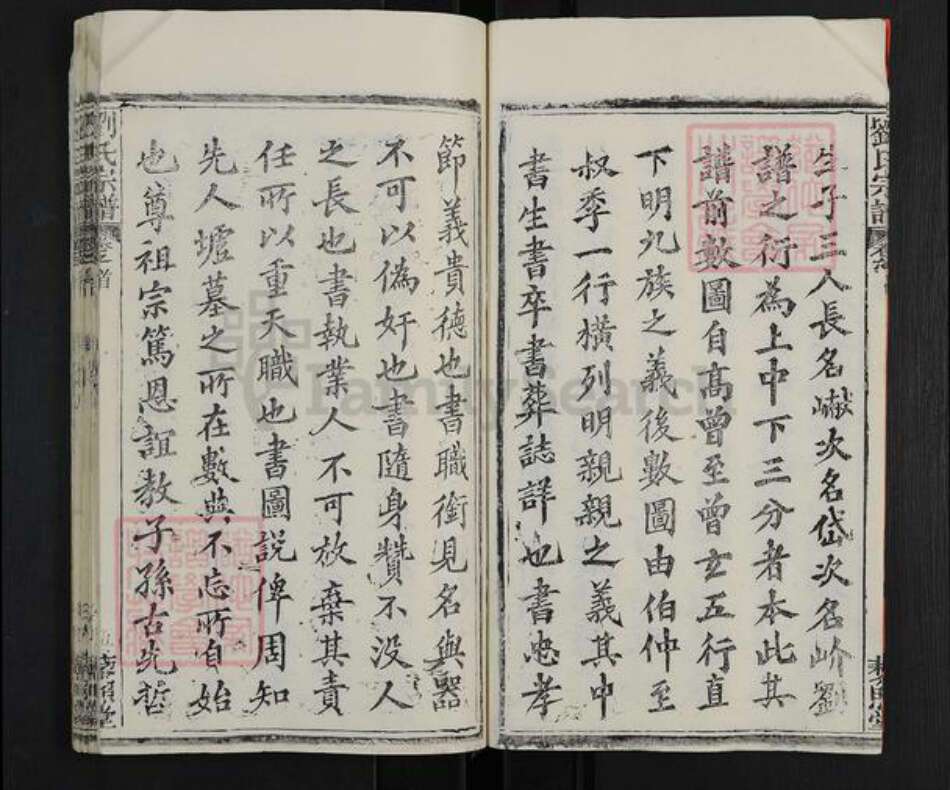 生子三人長名巘次名岱次名岕劉
譜之衍為上中下三分者本此其
譜前數圖自高曾至曾玄五行直
下明九族之義後數圖由伯仲至
叔季一行橫列明親親之義其中
書生書卒書葬誌詳也書忠孝
節義貴德也書職銜見名與器
不可以偽奸也書隨身贊不沒人
之長也書執業人不可放棄其責
任所以重天職也書圖說俾周知
先人墟墓之所在數典不忘所自始
也尊祖宗篤恩誼教子孫古先哲
劉氏宗譜
卷首
劉氏宗譜
卷首
FamilySearch